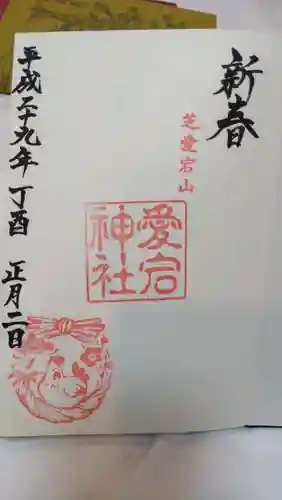 新春
芝愛宕山
愛宕
神社
平成二十九年 丁酉 正月二日